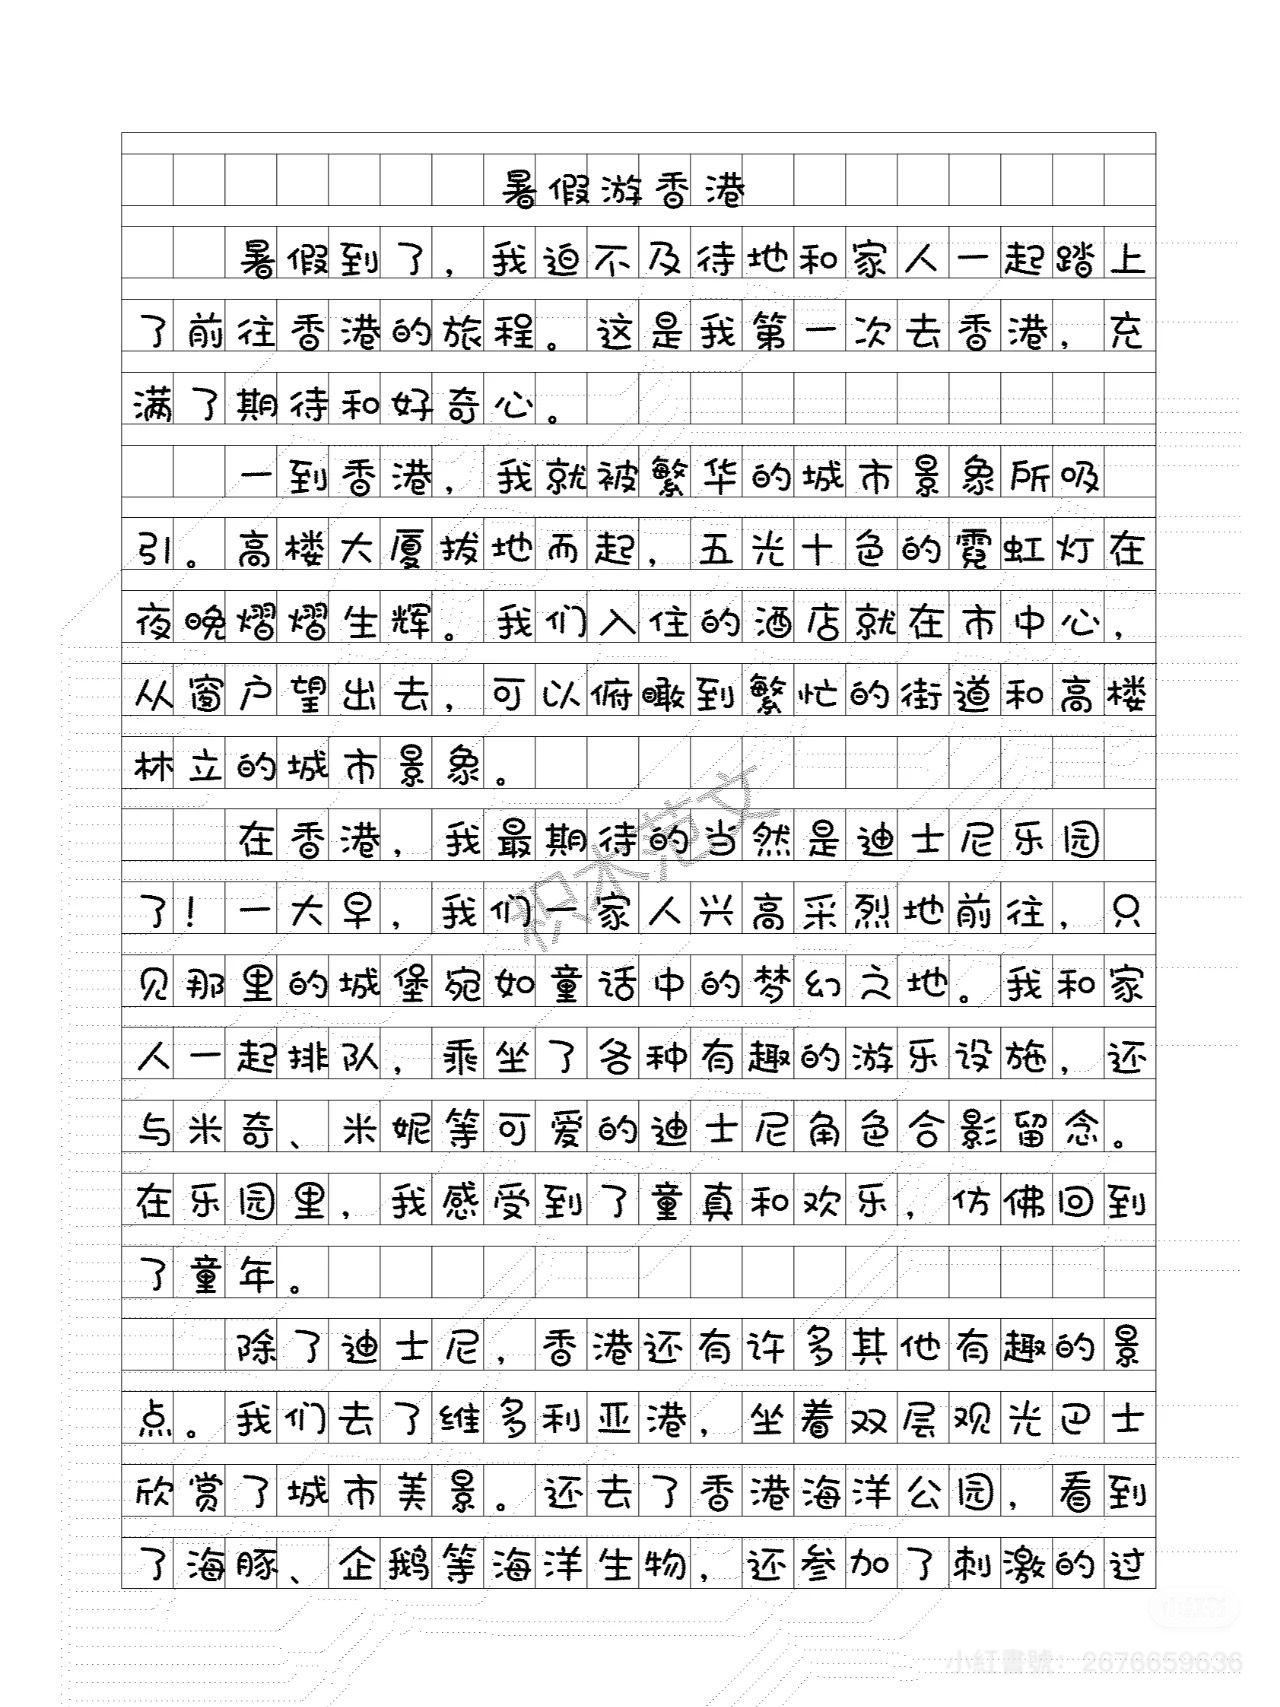 暑假游香港
暑假到了，我迫不及待地和家人一起踏上
了前往香港的旅程。这是我第一次去香港，充
满了期待和好奇心。
一到香港，我就被繁华的城市景象所吸
引。高楼大厦拔地而起，五光十色的霓虹灯在
夜晚熠熠生辉。我们入住的酒店就在市中心，
从窗户望出去，可以俯瞰到繁忙的街道和高楼
林立的城市景象。
在香港，我最期待的当然是迪士尼乐园
了！一大早，我们一家人兴高采烈地前往，只
见那里的城堡宛如童话中的梦幻之地。我和家
人一起排队，乘坐了各种有趣的游乐设施，还
与米奇、米妮等可爱的迪士尼角色合影留念。
在乐园里，我感受到了童真和欢乐，仿佛回到
了童年。
除了迪士尼，香港还有许多其他有趣的景
点。我们去了维多利亚港，坐着双层观光巴士
欣赏了城市美景。还去了香港海洋公园，看到
了海豚、企鹅等海洋生物，还参加了刺激的过
积木范文
小红书
小紅書號：2676659636